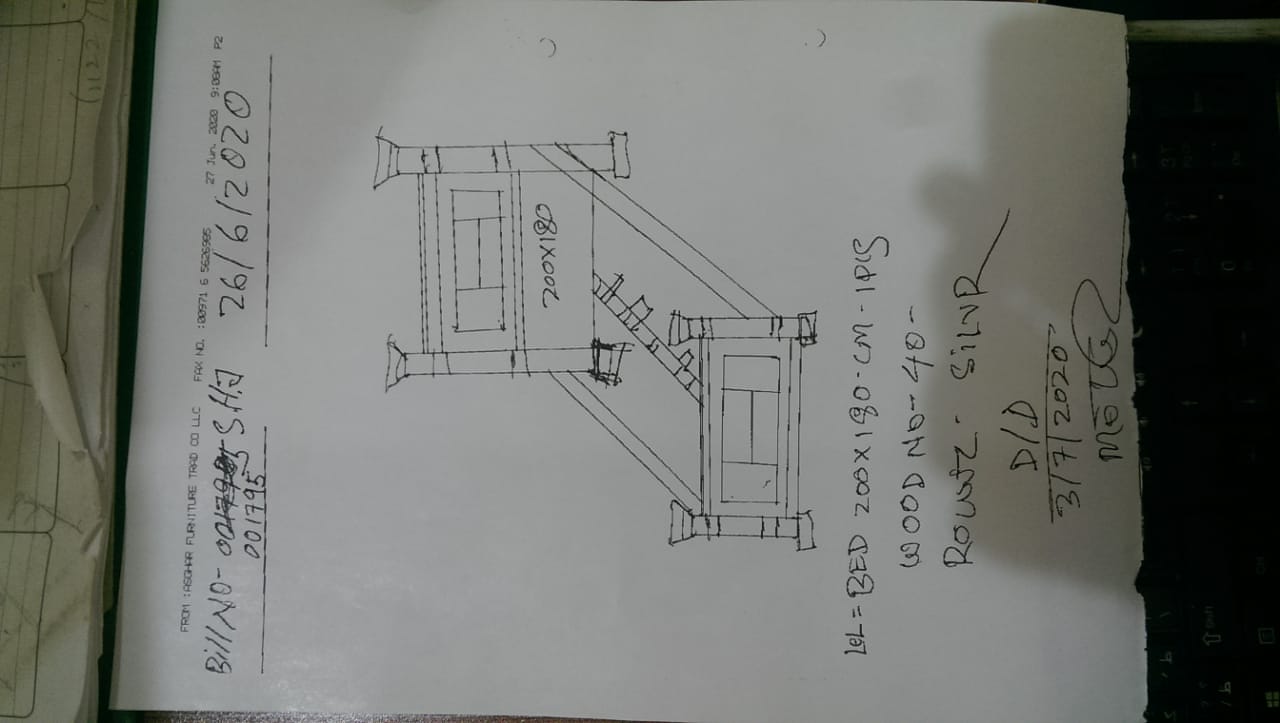 FROM :ASGHAR FURNITURE TRAD CO LLC FAX NO. :00971 6 5626985 27 Jun. 2020 9:08AM P2
Bill NO- SHJ 26/6/2020
001795
200X180
= BED 200X180-CM-1PCS
WOOD NO-40-
SILVR
D/D
3/7/2020